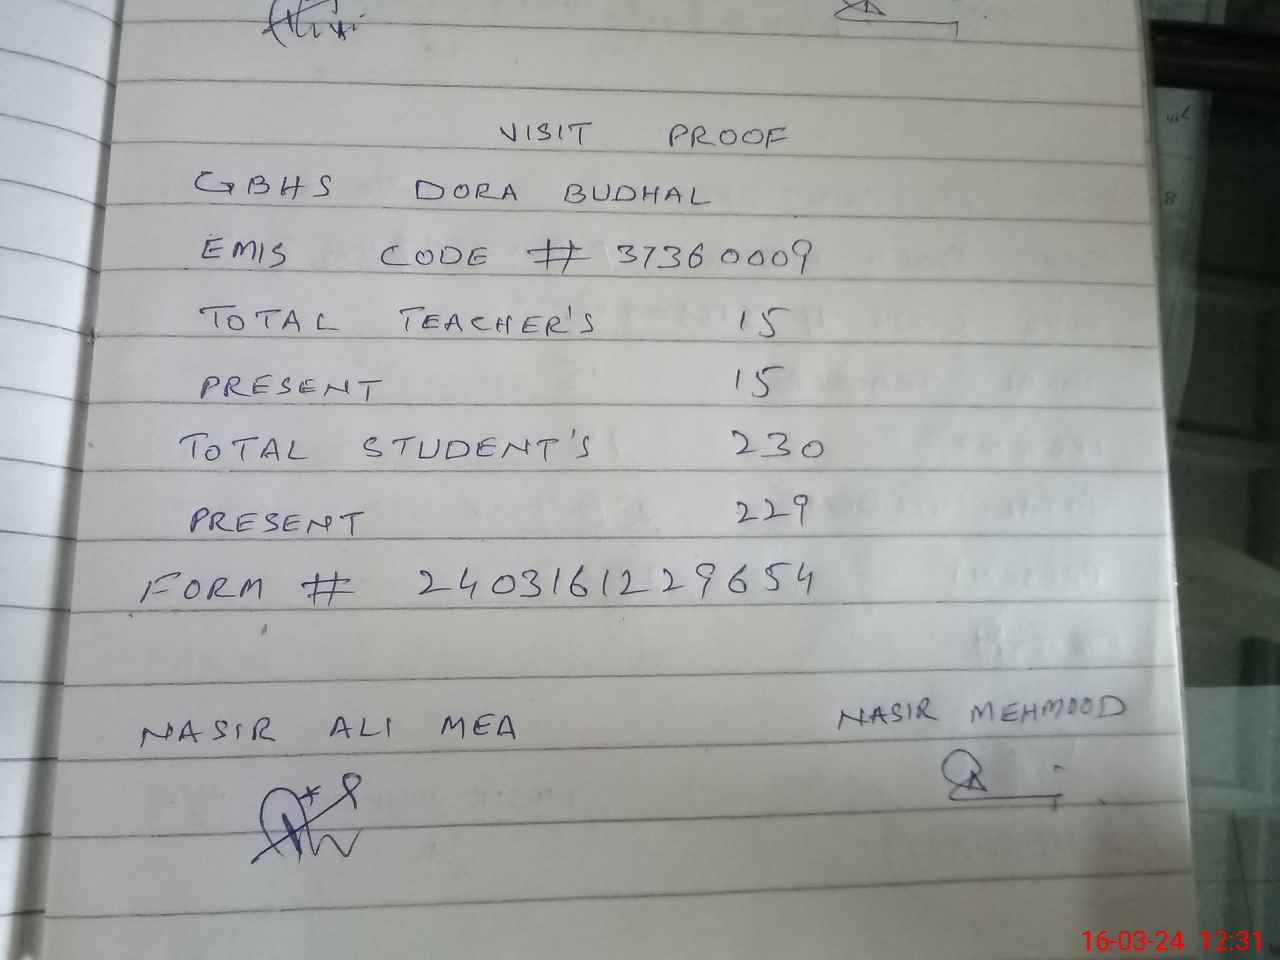 VISIT PROOF
GBHS DORA BUDHAL
EMIS CODE # 37360009
TOTAL TEACHER'S 15
PRESENT 15
TOTAL STUDENT'S 230
PRESENT 229
FORM # 2403161229654
NASIR ALI MEA NASIR MEHMOOD
16-03-24 12:31